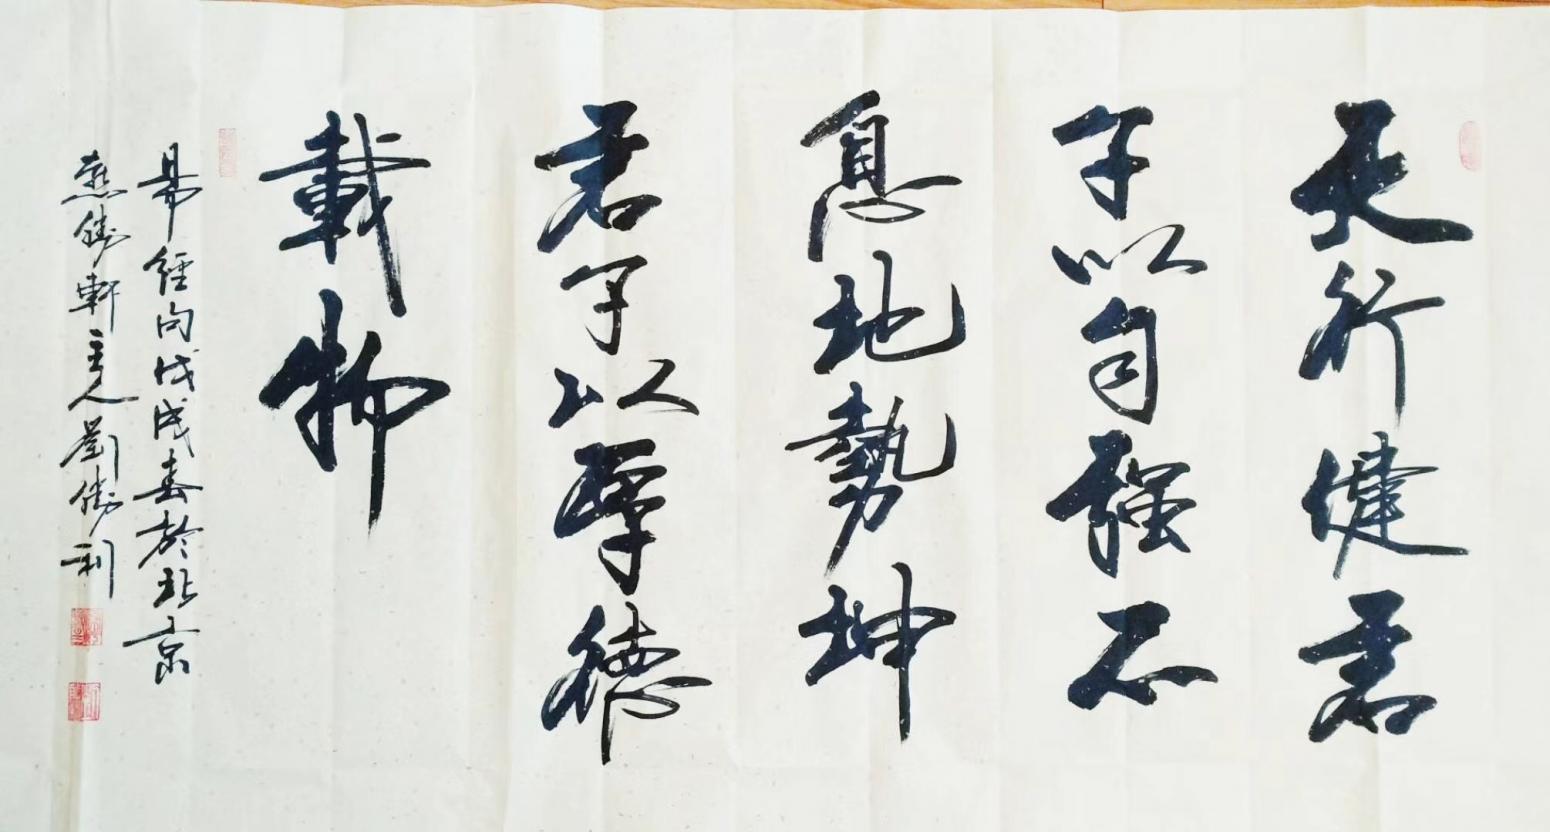 天行健君
子以自強不
息地勢坤
君子以厚德
載物
易經句戊戌春於北京
燕勝軒主人劉勝利